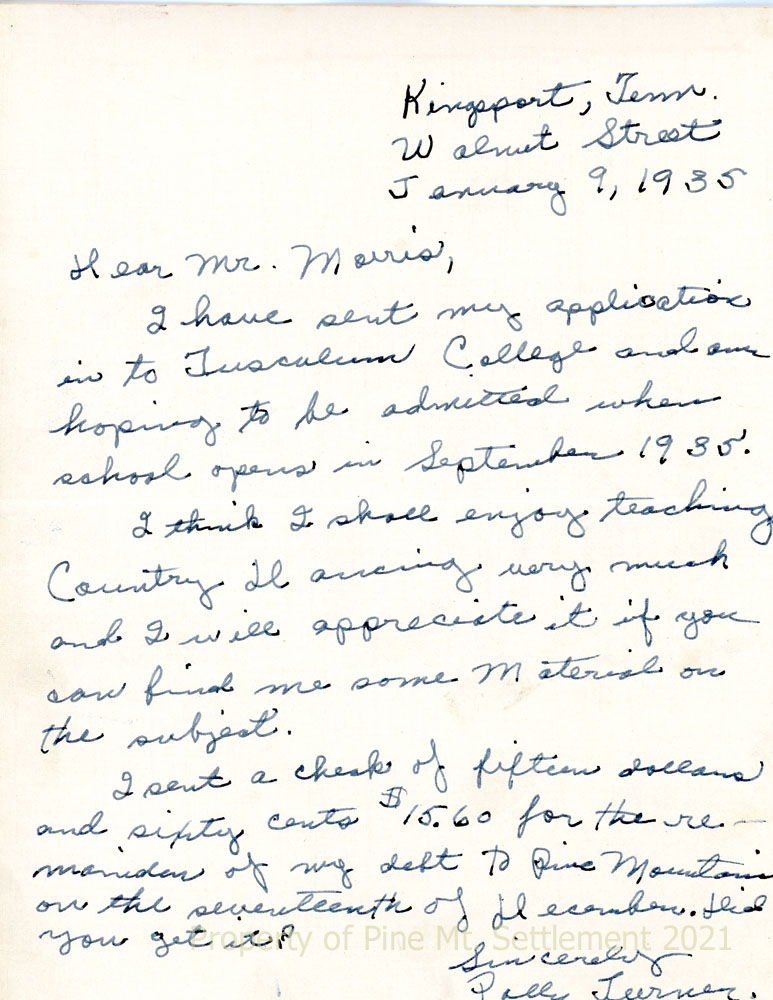 Kingsport, Tenn.
Walnut Street
January 9, 1935
Dear Mr. Morris,
I have sent my application
in to Tusculum College and am
hoping to be admitted when
school opens in September 1935.
I think I shall enjoy teaching
Country Dancing very much
and I will appreciate it if you
can find me some Material on
the subject.
I sent a check of fifteen dollars
and sixty cents $15.60 for the re-
mainder of my debt to Pine Mountain
on the seventeenth of December. Did
you get it?
Property of Pine Mt. Settlement 2021
Sincerely
Polly Turner.